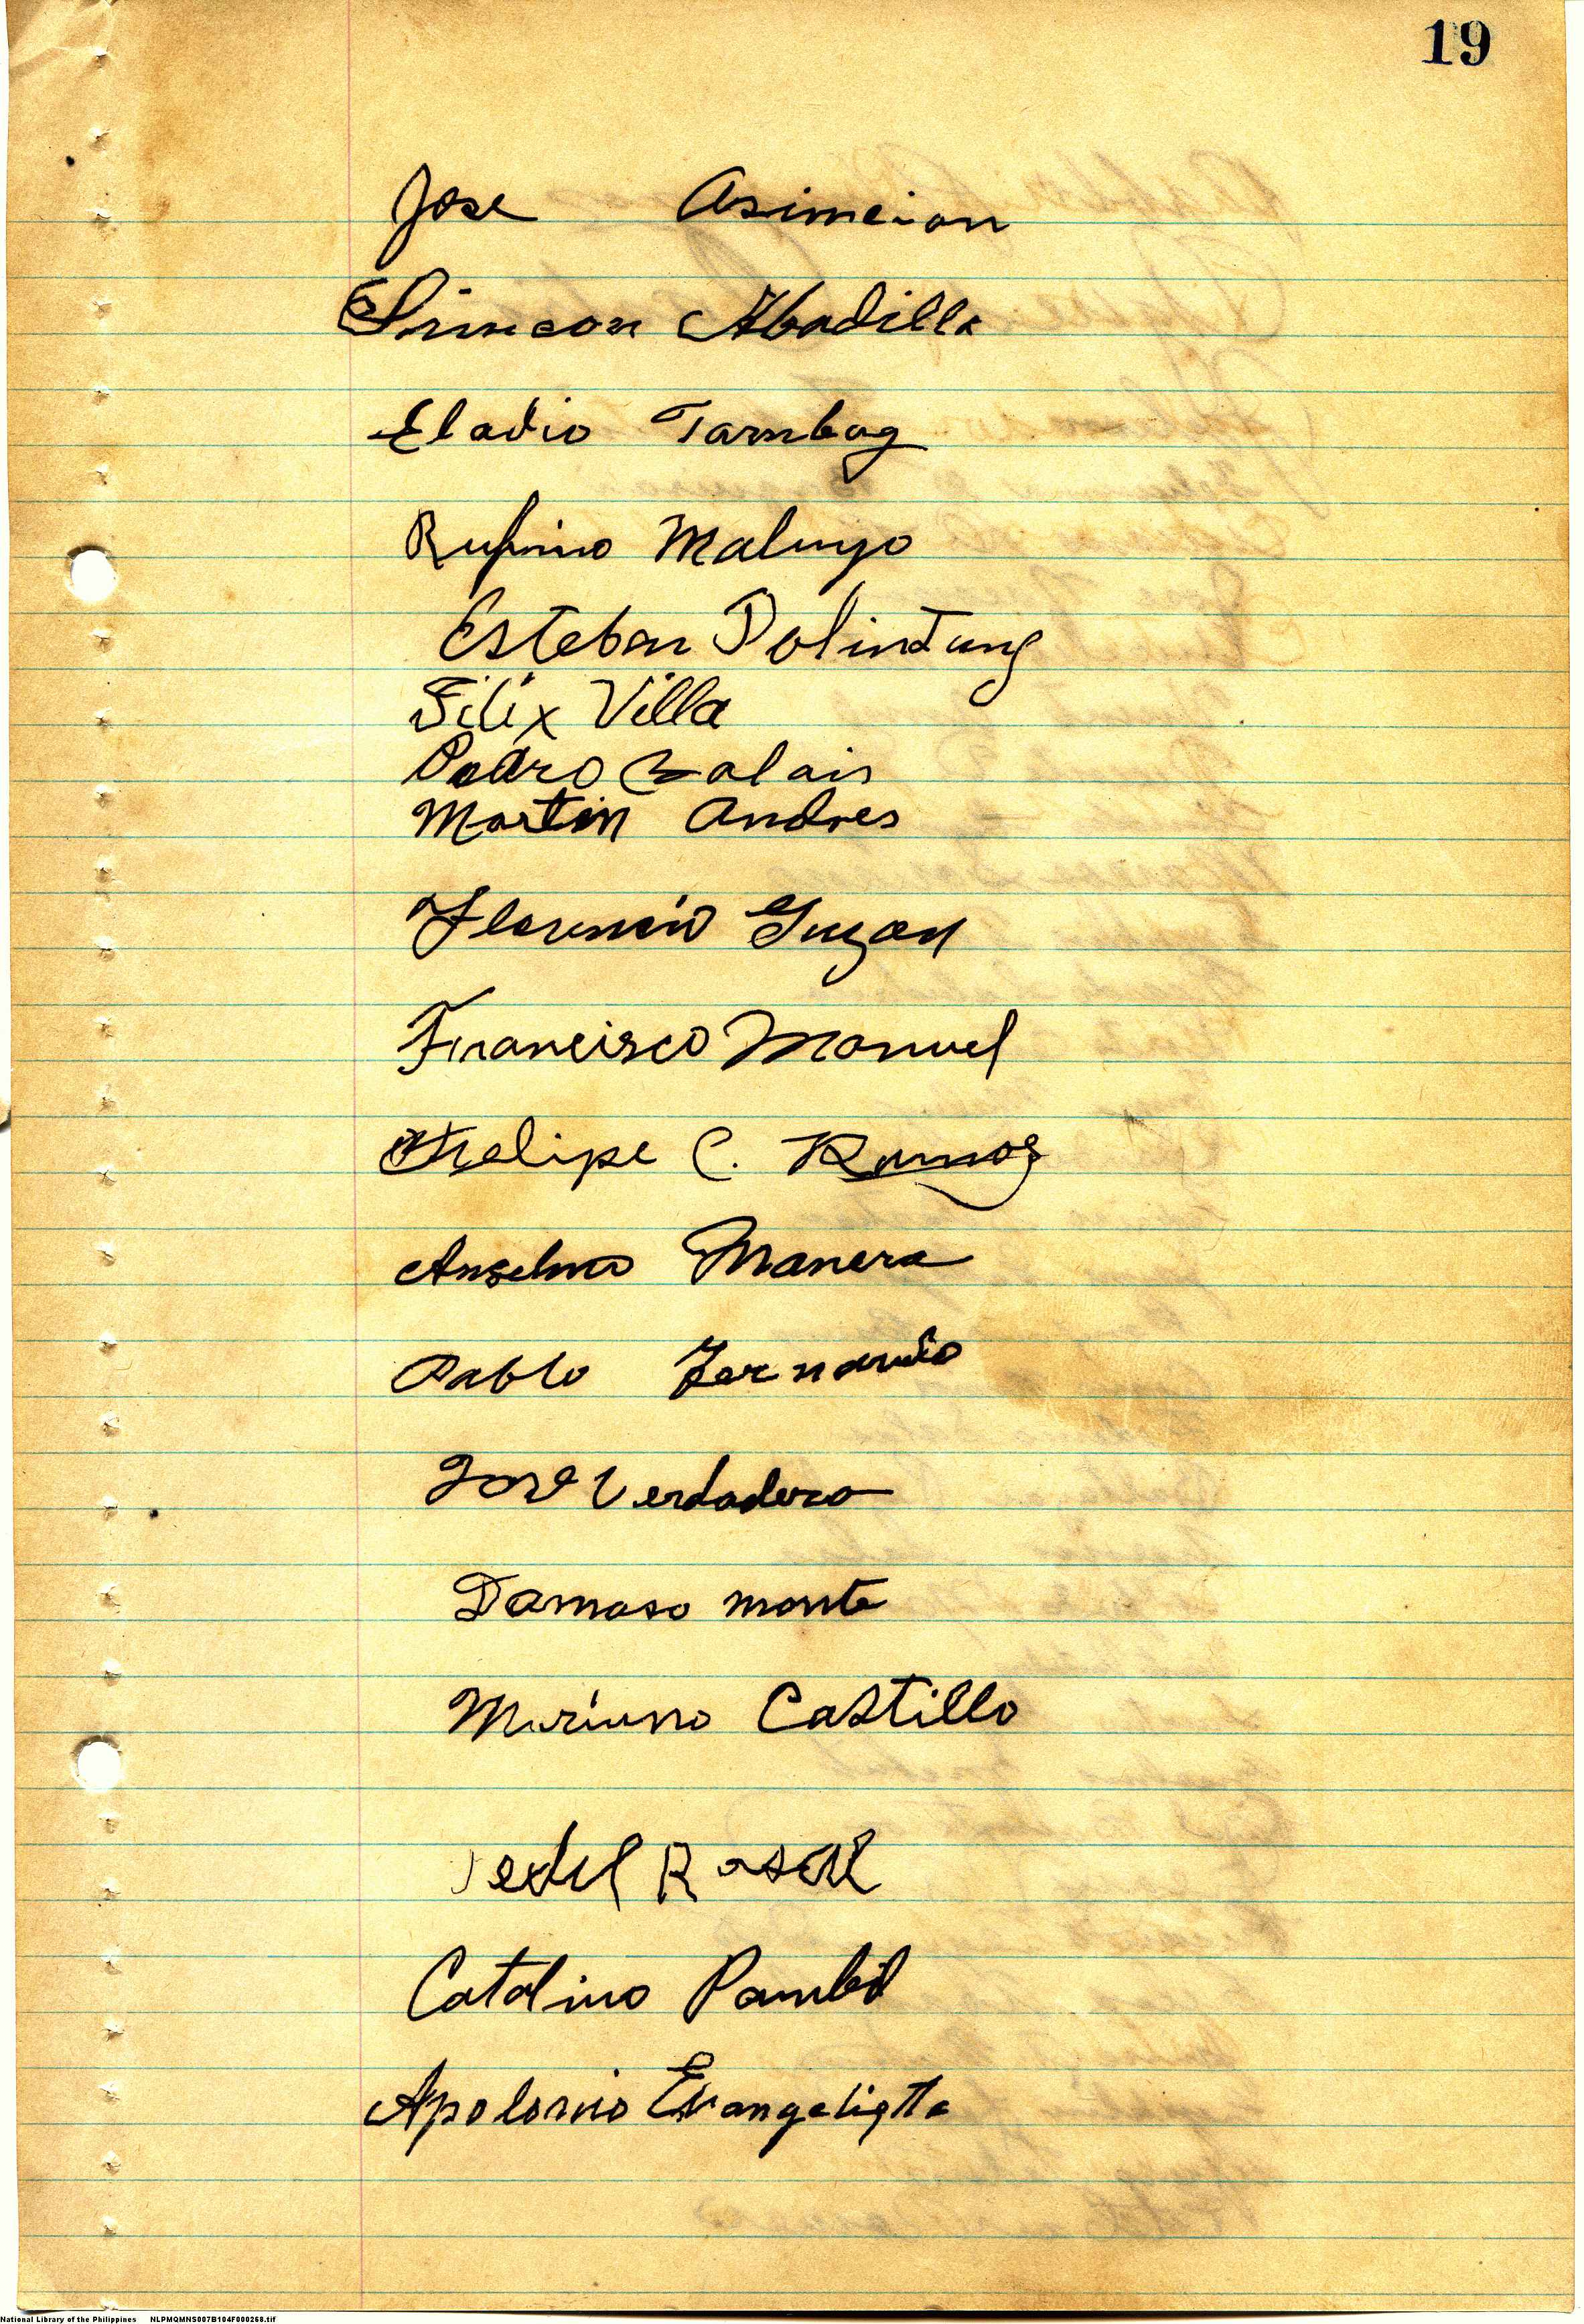 19
Jose Asimcion
Simeon Abadilla
Eladio Tambag
Rufino Maluyo
Esteban Dolintung
Filix Villa
Pedro Balais
Martin Andres
Florencio Guzon
Francisco Manuel
Felipe C. Ramos
Anselmo Manera
Pablo Fernando
Jose Verdadero
Damaso monte
Mariano Castillo
Catalino Pambid
Apolonio Evangelista
National Library of the Philippines NLPMQMNS007B104F000268.tif